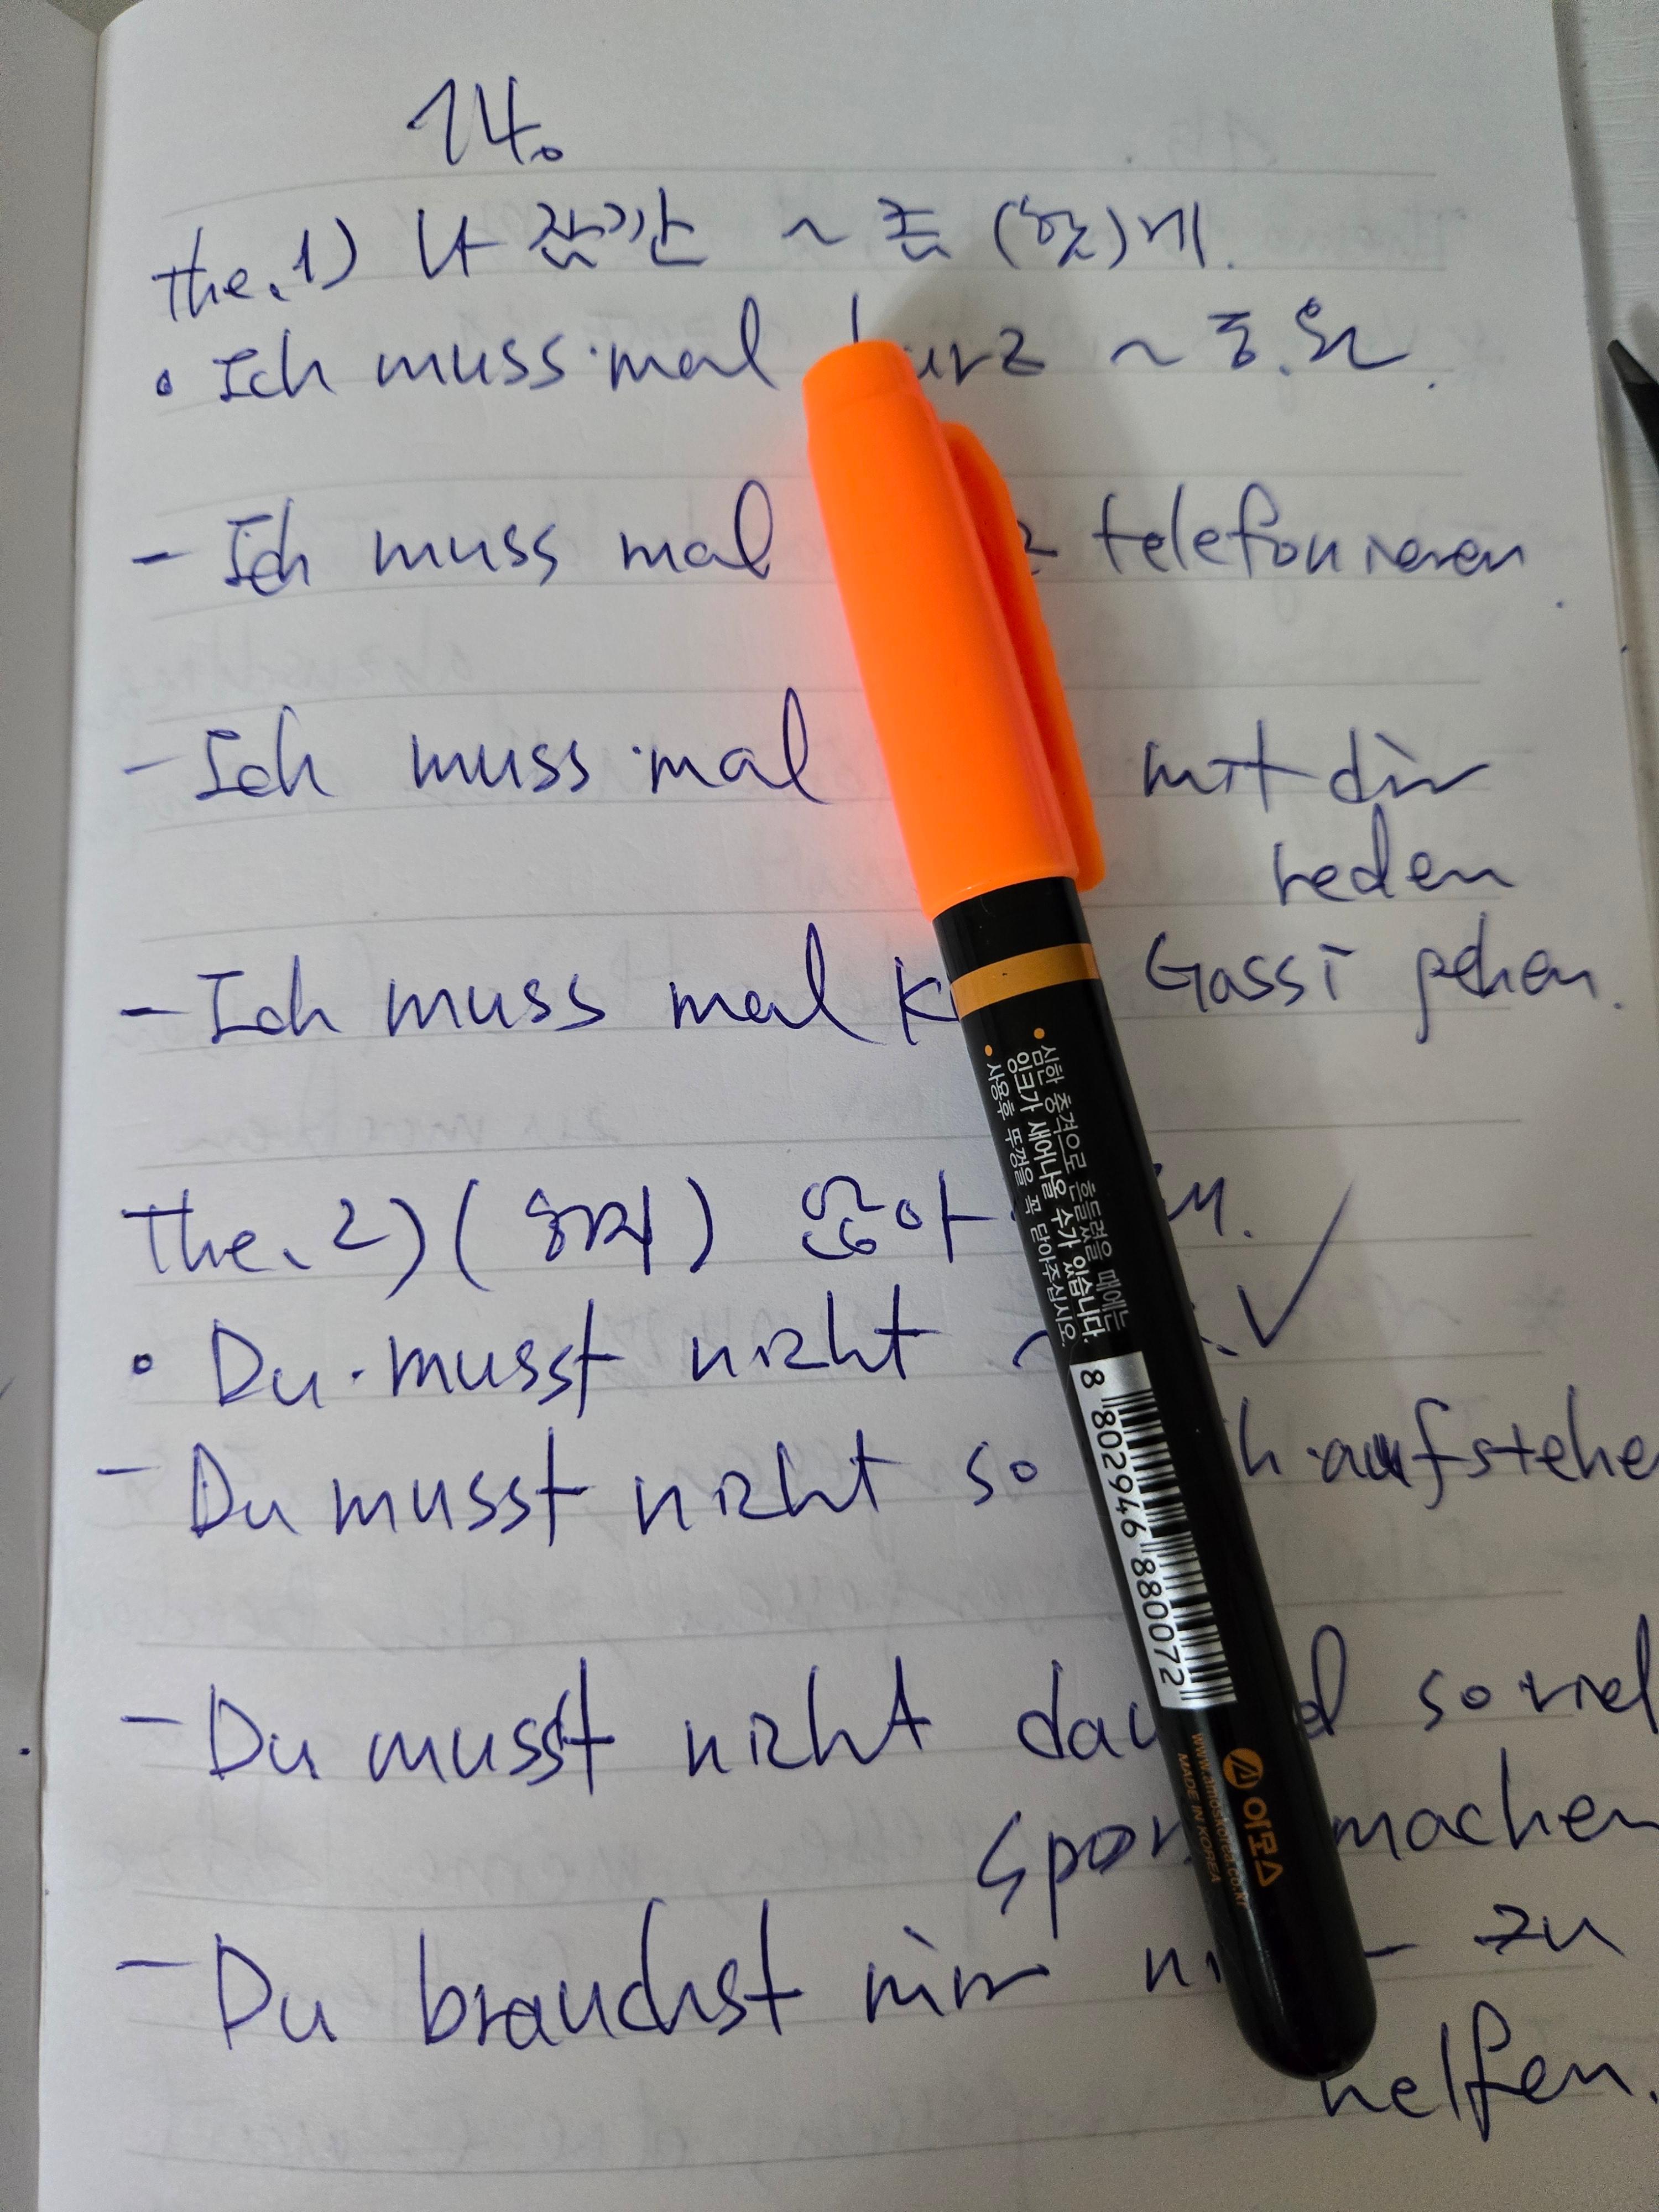 14.
the.1) 나 잠깐 ~ 좀 (할)게.
• Ich muss mal urz ~ 동.원.
- Ich muss mal z telefonieren.
- Ich muss mal mit dir
reden
- Ich muss mal k Gassi gehen.
the.2) (하지) 않아
• Du musst nicht ~
- Du musst nicht so h aufstehe
- Du musst nicht dau d so viel
Spor machen
- Du brauchst mir ni zu
helfen.
• 심한 충격으로 흔들렸을 때에는
잉크가 새어나올 수가 있습니다.
• 사용후 뚜껑을 꼭 닫아주십시오.
8 802946 880072
아모스
www.amoskorea.co.kr
MADE IN KOREA